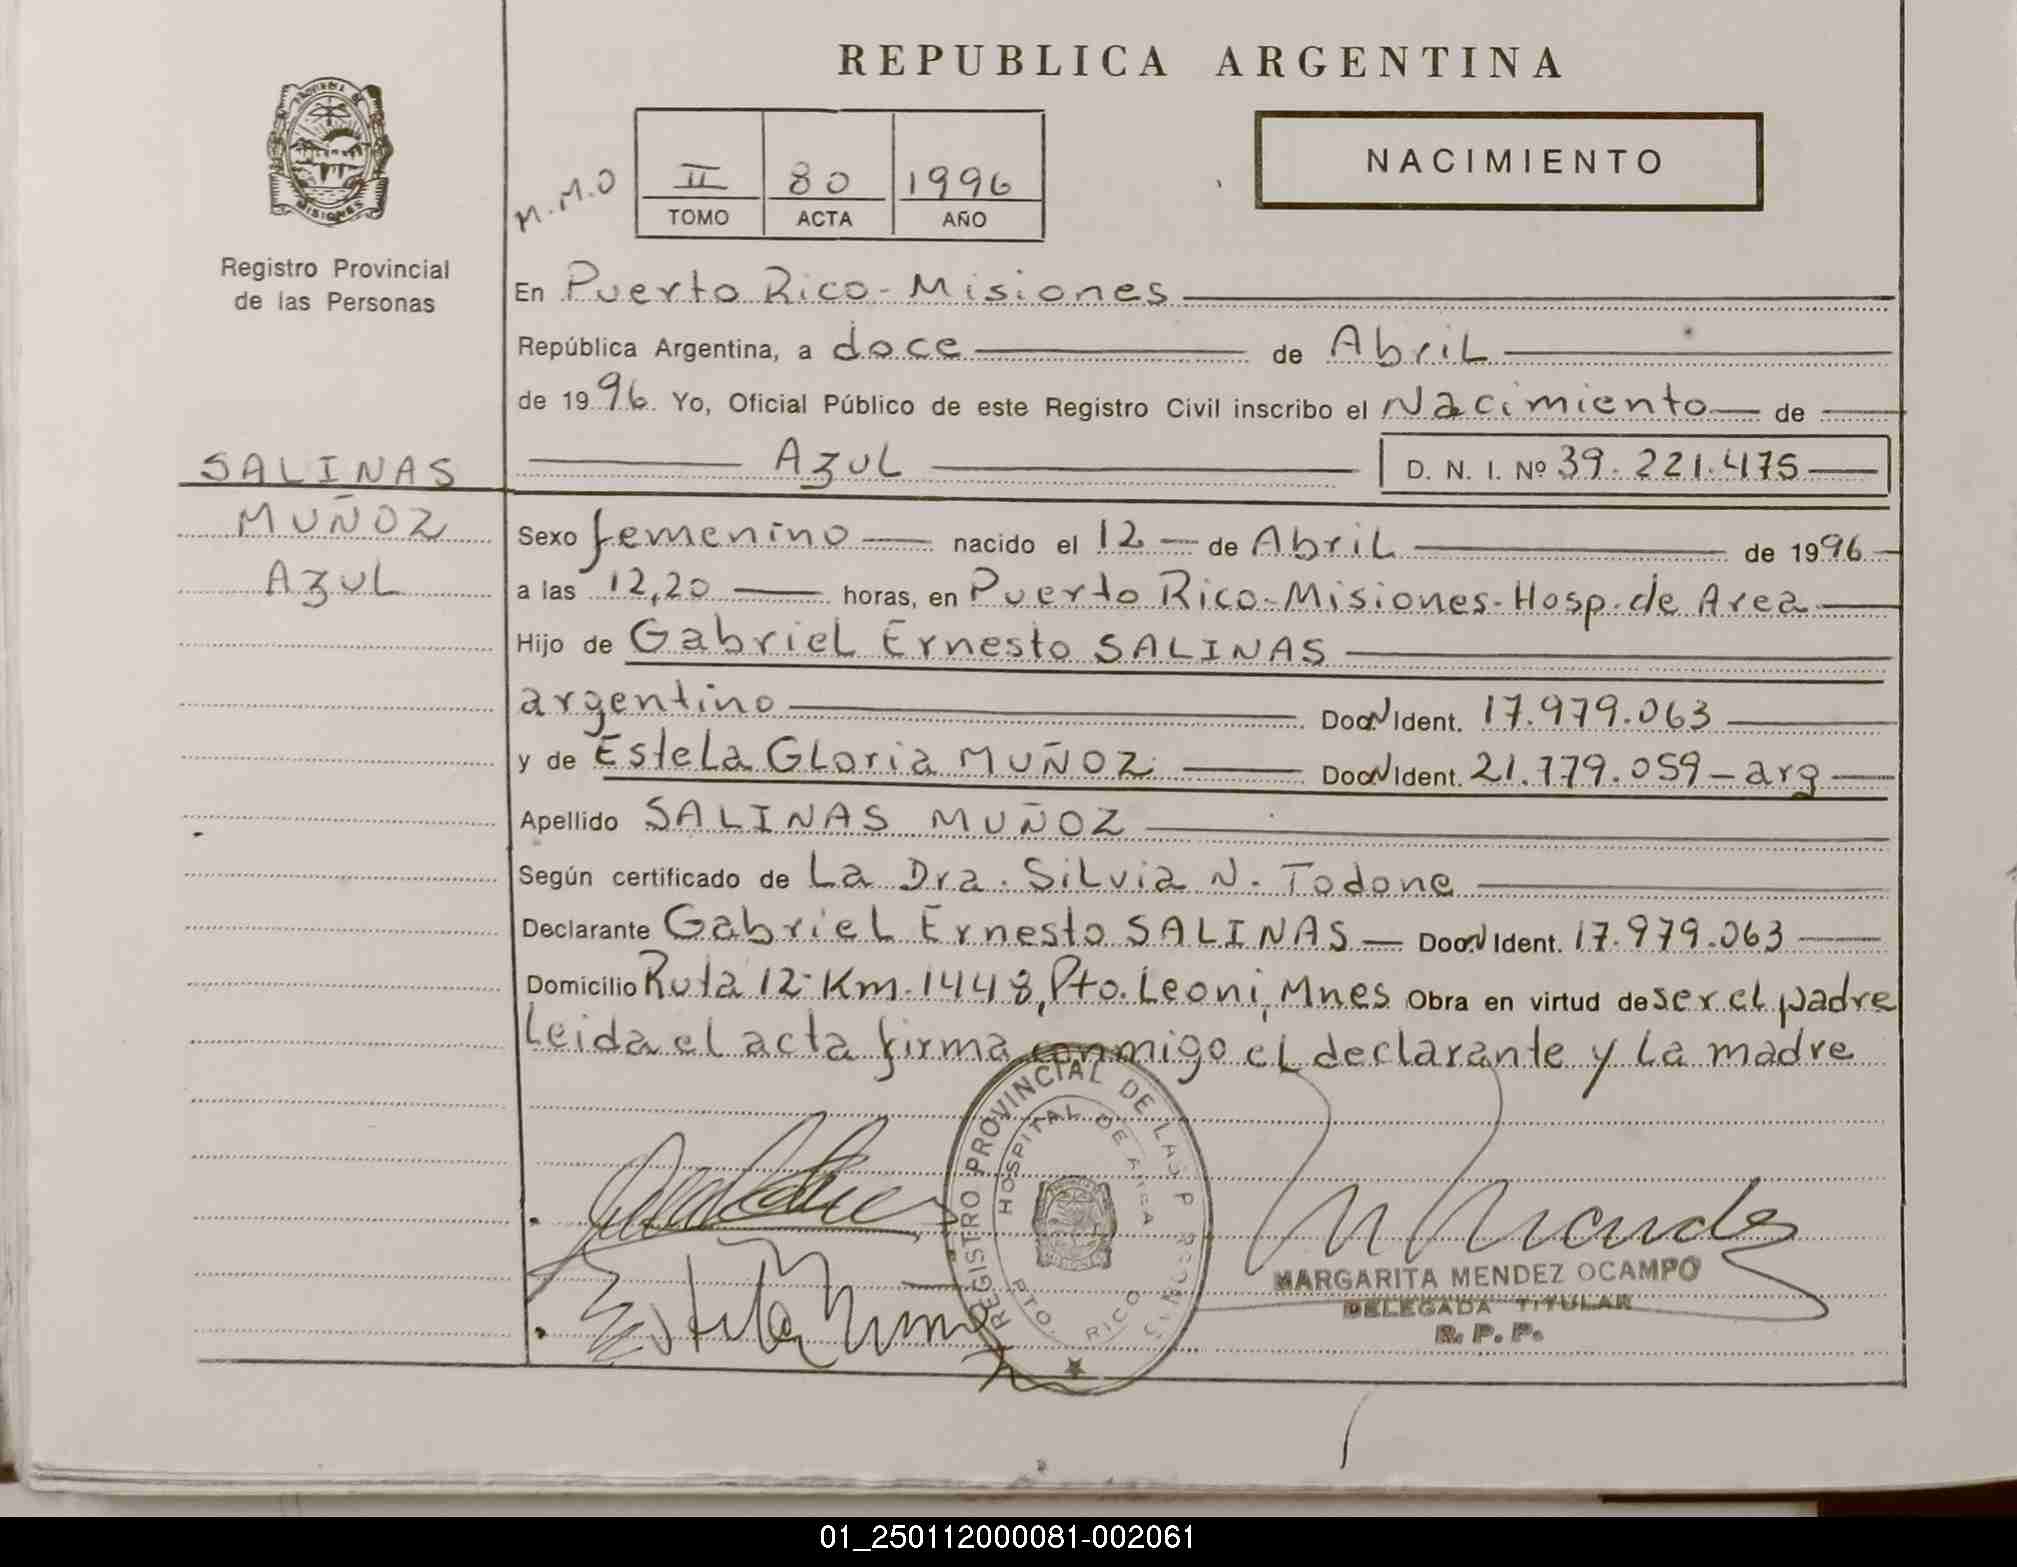 REPUBLICA ARGENTINA
NACIMIENTO
PROVINCIA DE
MISIONES
Registro Provincial
de las Personas
M.M.O
II 80 1996
TOMO ACTA AÑO
En Puerto Rico - Misiones
República Argentina, a doce de Abril
de 1996. Yo, Oficial Público de este Registro Civil inscribo el Nacimiento de
Azul D. N. I. Nº 39.221.475
SALINAS
MUÑOZ
AzuL
Sexo femenino nacido el 12 de Abril de 1996
a las 12,20 horas, en Puerto Rico-Misiones-Hosp.de Area
Hijo de Gabriel Ernesto SALINAS
argentino Doc. N Ident. 17.979.063
y de Estela Gloria MUÑOZ Doc. N Ident. 21.779.059 - arg
Apellido SALINAS MUÑOZ
Según certificado de La Dra. Silvia N. Todone
Declarante Gabriel Ernesto SALINAS Doc. N Ident. 17.979.063
Domicilio Ruta 12-Km.1448, Pto. Leoni, Mnes Obra en virtud de ser el padre
Leida el acta firma conmigo el declarante y la madre
REGISTRO PROVINCIAL DE LAS P
HOSPITAL DE AREA
PTO. RICO
M Mendez
Estela Munoz
MARGARITA MENDEZ OCAMPO
DELEGADA TITULAR
R. P. P.
01_250112000081-002061